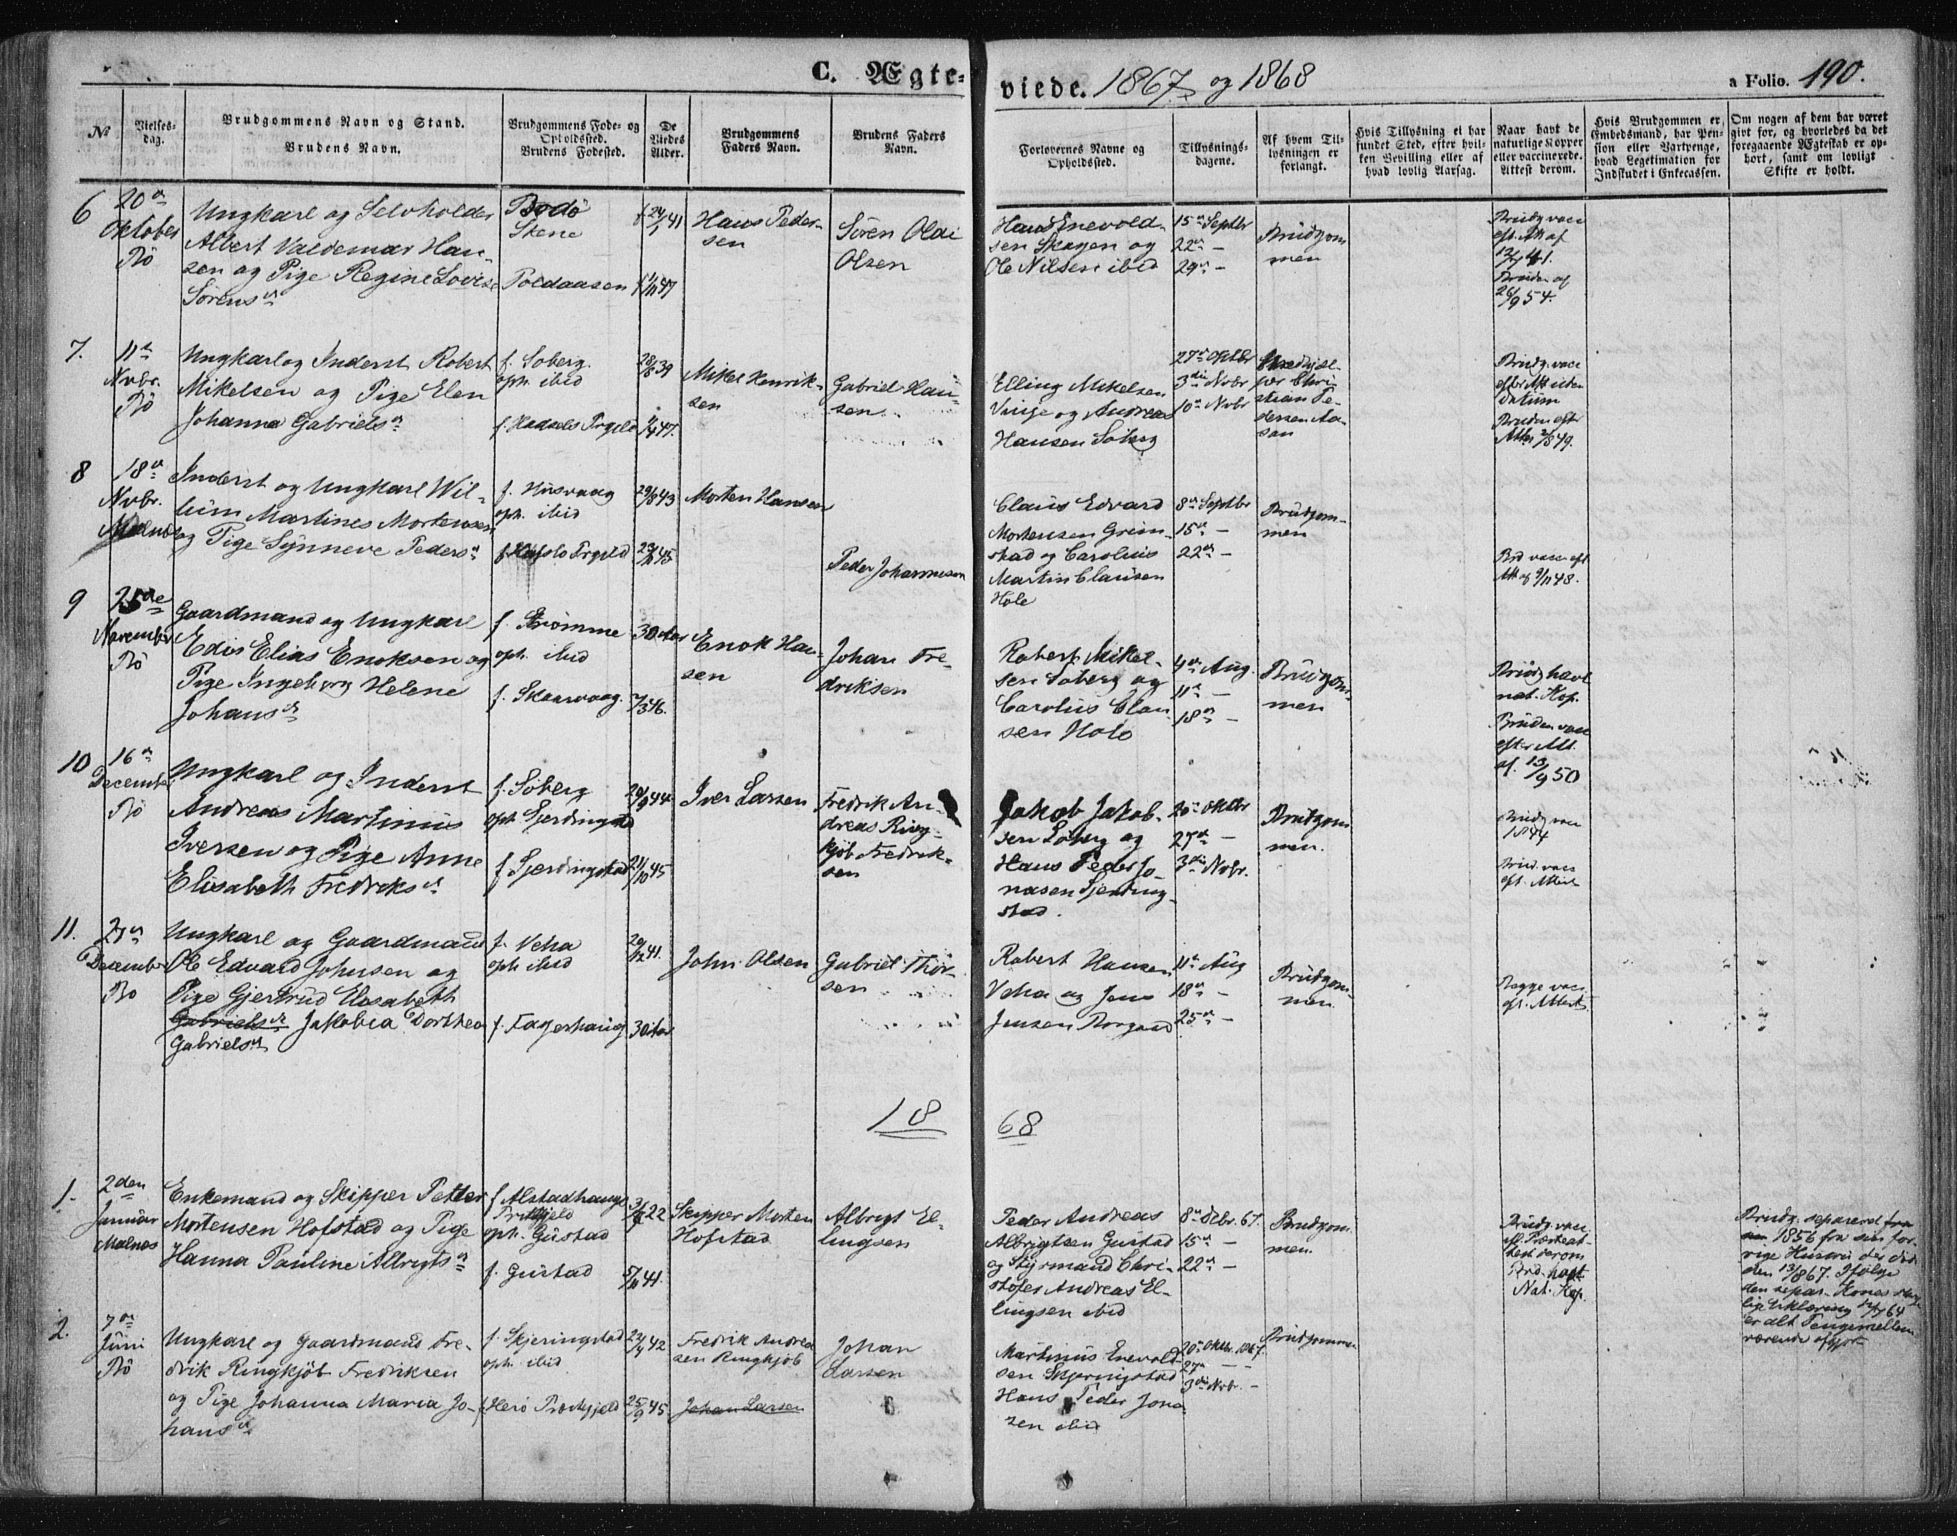 C. Ægteviede. 1867 og 1868
a Folio. 190.
№
Vielsesdag.
Brudgommens Navn og Stand.
Brudens Navn.
Brudgommens Føde- og
Opholdssted.
Brudens Fødested.
De
Viedes
Alder.
Brudgommens
Faders Navn.
Brudens Faders
Navn.
Forlovernes Navne og
Opholdssted.
Tillysnings-
dagene.
Af hvem Til-
lysningen er
forlangt.
Hvis Tillysning ei har
fundet Sted, efter hvil-
ken Bevilling eller af
hvad lovlig Aarsag.
Naar havt de
naturlige Kopper
eller vaccinerede.
Attest derom.
Hvis Brudgommen er
Embedsmand, har Pen-
sion eller Vartpenge,
hvad Legetimation for
Indskudet i Enkecassen.
Om nogen af dem har været
givt før, og hvorledes da det
foregaaende Ægteskab er op-
hørt, samt om lovligt
Skifte er holdt.
6
20de
Oktober
Bö
Ungkarl og Selvholder
Albert Valdemar Han-
sen og Pige Regine Lovise
Sörensd.
Bodö
Stene
Poldaasen
Hans Peder-
sen
Sören Oldi
Olsen
Hans Enevold-
sen Skagen og
Ole Nilsen ibid
15de Septbr
22de -
29de -
Brudgom
men
Brudg vacc
eft. Att af
Bruden af
26/9 54.
7.
11te
Nvbr.
Bö
Ungkarl og Inderst Robert
Mikelsen og Pige Elen
Johanna Gabrielsd.
f. Soberg
oph. ibid
f. Hadsels Prgjeld
28/8 39
Mikel Henrik-
sen
Gabriel Han-
sen
Elling Mikelsen
Vinje og Andreas
Hansen Soberg
27de Oktbr
3die Nvbr
10de Nvbr
Brudg. vacc
efter Att uden
datum
Bruden eft
8
18de
Nvbr.
Malnes
Inderst og Ungkarl Wil-
lum Martines Mortensen
og Pige Synneve Pedersd.
f. Husvaag
oph. ibid
29/8 43
Morten Hansen
Peder Johannesen
Claus Edvard
Mortensen Grim-
stad og Carolius
Martin Clausen
Hole
8de Septbr
15de -
22de -
Brudgom-
men
Brd vacc eft
Att af 9/11 48.
9
25de
November
Bö
Gaardmand og Ungkarl
Edis Elias Enoksen og
Pige Ingeborg Helene
Johansd.
f. Strömme
oph. ibid
f. Skaarvaag.
30 Aar
7/3 46.
Enok Han-
sen
Johan Fre-
driksen
Robert Mikel-
sen Soberg og
Carolius Clau
sen Hole
4de Aug.
11te -
18de -
Brudgom-
men
Brudg havt
nat. Kop.
Bruden vacc
efter Att.
af. 13/9 50
10
16de
December
Bö
Ungkarl og Inderst
Andreas Martinus
Iversen og Pige Anne
Elisabeth Fredriksd.
f. Soberg
oph. Sjerdingstad
f. Sjerdingstad
20/9 44
21/10 45
Iver Larsen
Fredrik An-
dreas Ring-
kjöb Fredrik-
sen
Jakob Jakob-
sen Soberg og
Hans Peder Jo-
nasen Sjerding-
stad.
20de Oktbr
27de -
3die Nvbr.
Brudgom
men.
Brudg vacc
1844
Brud. vacc
eft. Attest
11.
27de
December
Bö
Ungkarl og Gaardmand
Ole Edvard Johnsen og
Pige Gjertrud Elesabeth
Gabrielsd. Jakobia Dorthea
Gabrielsd.
f. Veha
oph ibid
f. Fagerhaug
29/12 41.
30 Aar
John Olsen
Gabriel Thor-
sen
Robert Hansen
Veha og Jens
Jensen Rorgaard
11te Aug
18de -
25de -
Brudgom-
men.
Begge vacc
eft. Attest
1868
1.
2den
Januar
Malnes
Enkemand og Skipper Petter
Mortensen Hofstad og Pige
Hanna Pauline Albrigtsd.
f. Alstadhaugs
Prstgjeld
oph. Gustad
f. Gustad
5/11 41.
Skipper Morten
Hofstad
Albrigt El-
lingsen
Peder Andreas
Albrigtsen Gustad
og Styrmand Chri-
stofer Andreas El-
lingsen ibid
8de Debr. 67.
15de -
22de -
Brudgom
men.
Brudg. vacc
eft. Præsteat-
test derom
Brd. havt
Nat. Kop.
Brudg. separeret fra
1856 fra sin for-
rige Hustru der död
den 13/ 867. Ifölge
den separ. Kones
lig Erklæring 64
er alt Pengemellem
værende afgjort
2.
7de
Juni
Bö
Ungkarl og Gaardmand Fre-
drik Ringkjöb Fredriksen
og Pige Johanna Maria Jo-
hansd.
f. Skjeringstad
oph. ibid
f. Herö Præstgjeld
22/4 42
25/9 45
Fredrik Andrea
sen Ringkjöb
Johan Larsen
Johan
Larsen
Martinus Enevold-
sen Skjeringstad
Hans Peder Jona-
sen ibid
20de Oktbr. 1867.
27de - -
3die Nvbr. -
Brudgommen